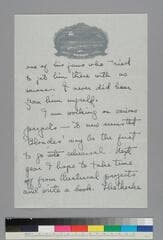 one of his jams who tried
to get him there with no
success. I never did hear
from him myself.
I am working on various
projects – A new musical
"Blondes" may be the first
to go into rehearsal. Next
year I hope to take time
off from theatrical projects
and write a book.